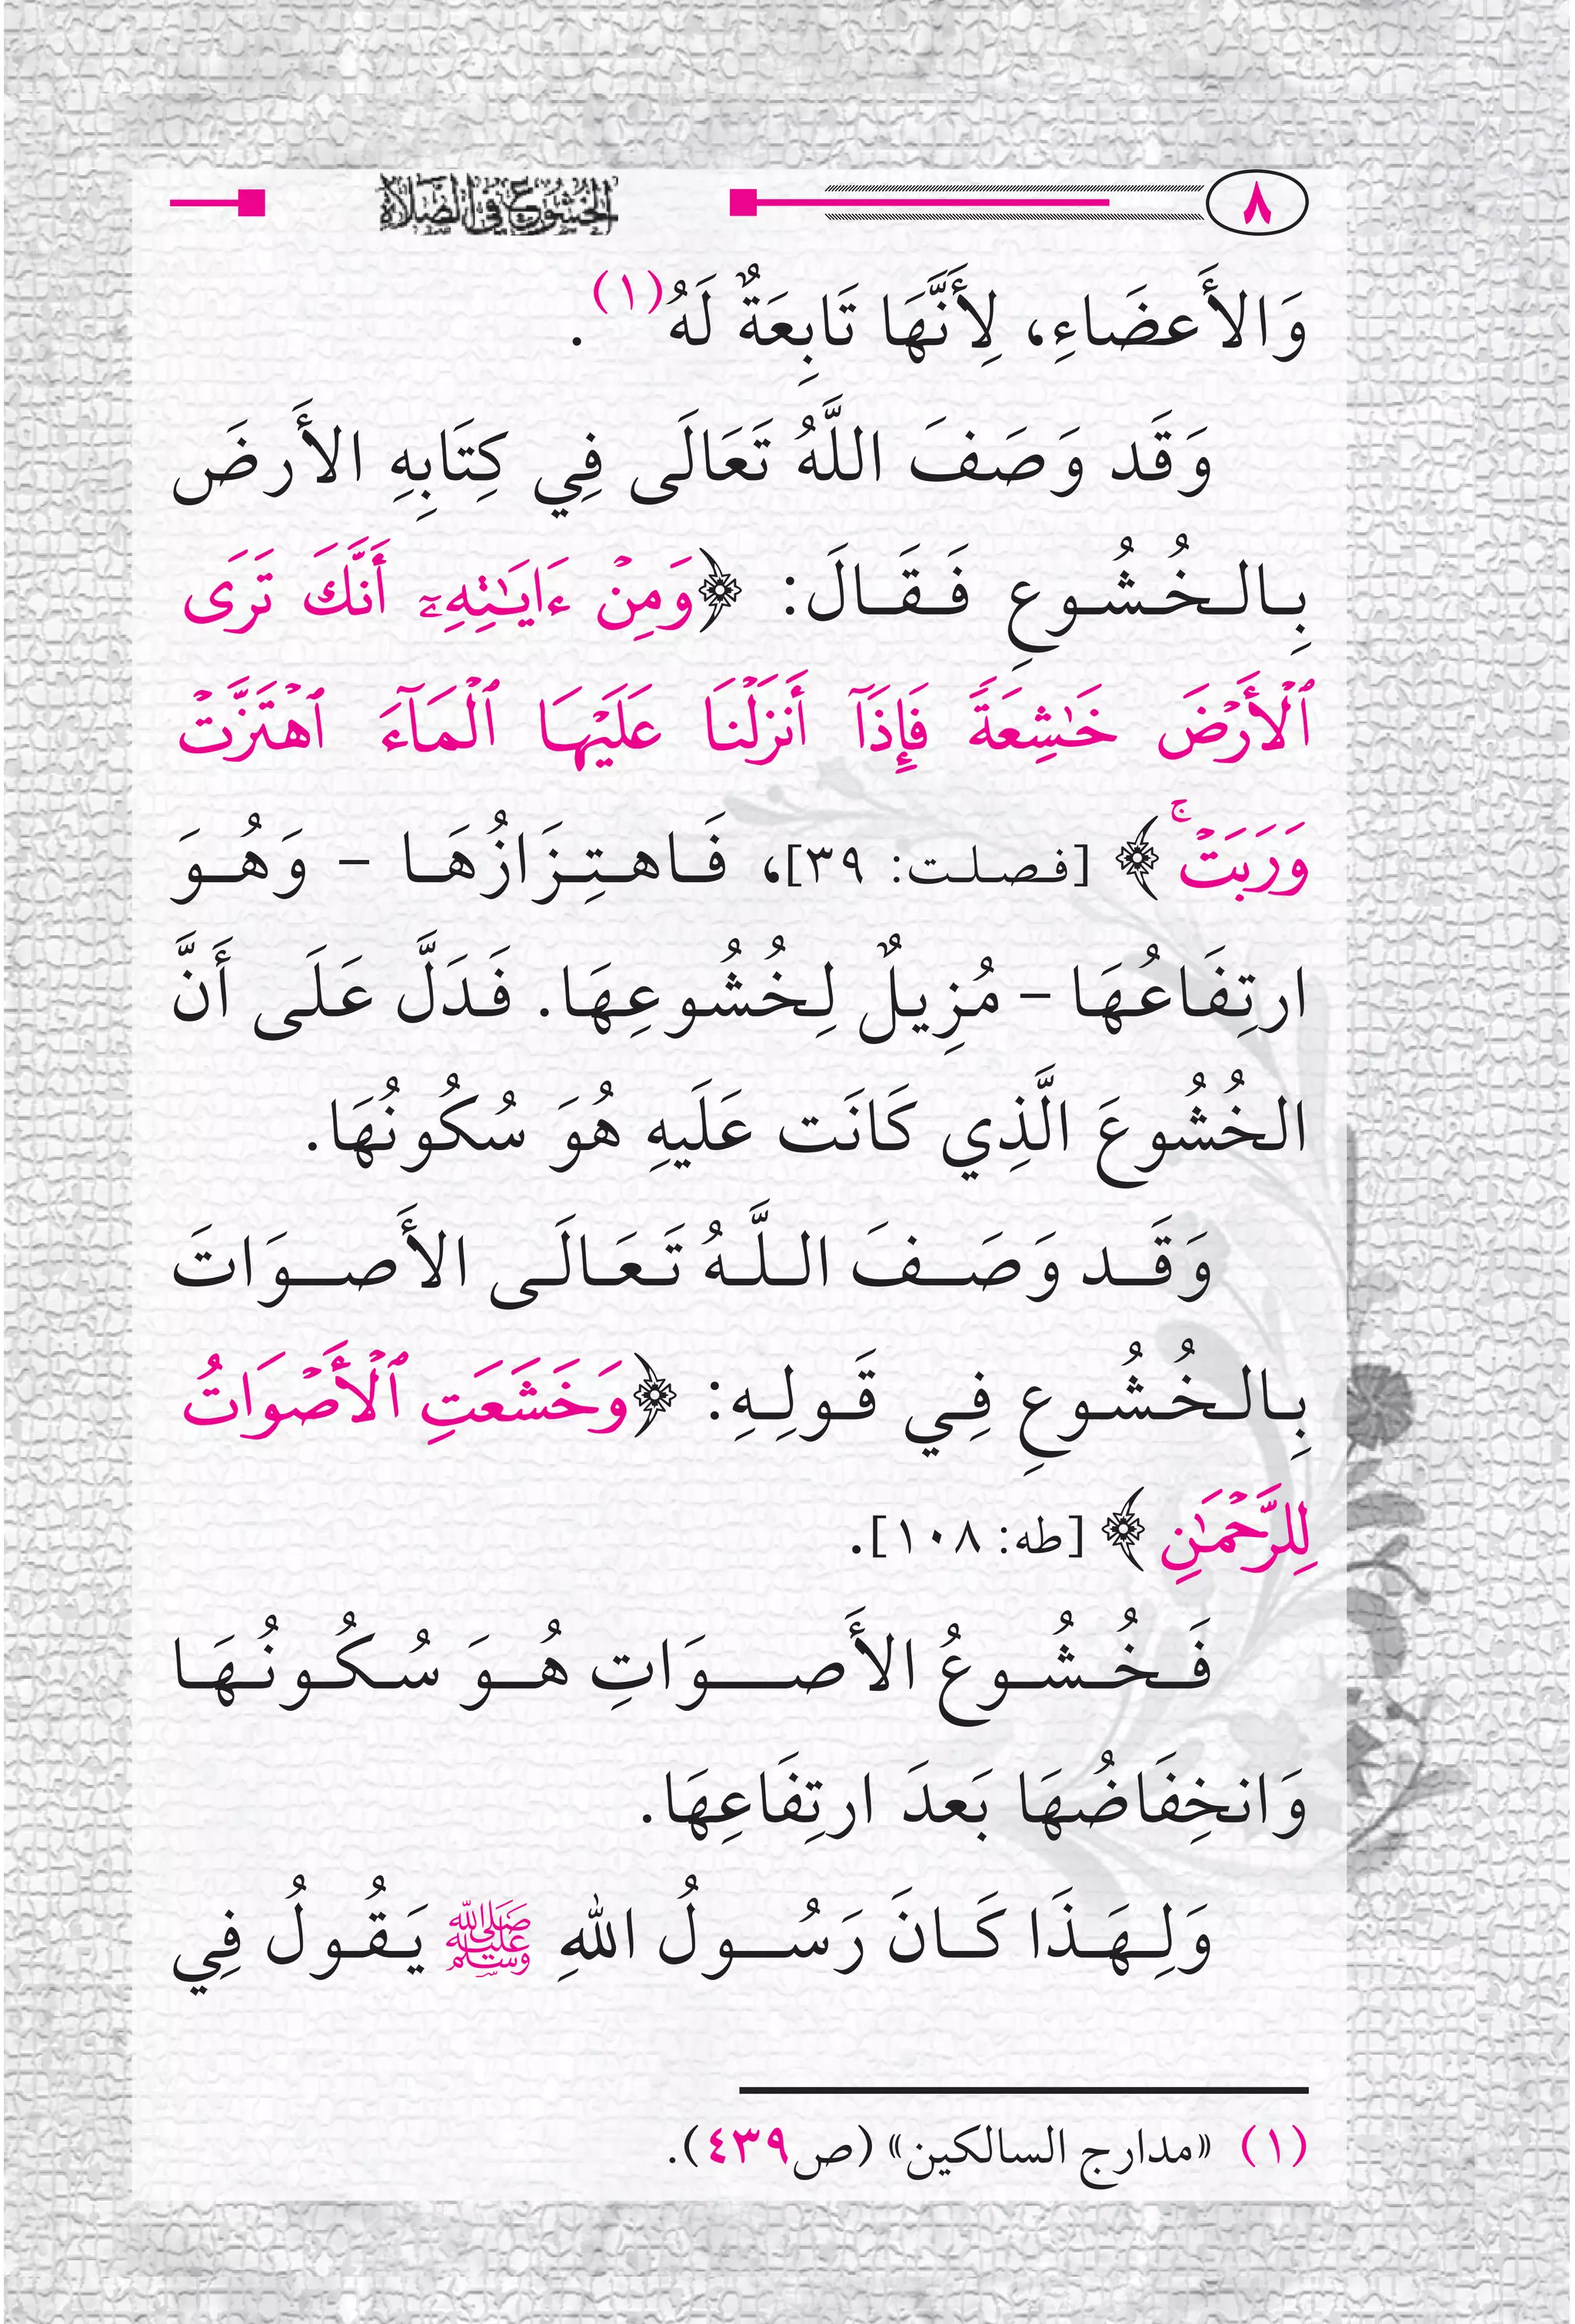 ٨ الخشوع في الصلاة
وَالأَعضَاءِ، لِأَنَّهَا تَابِعَةٌ لَهُ(١).
وَقَد وَصَفَ اللَّهُ تَعَالَى فِي كِتَابِهِ الأَرضَ
بِالخُشُوعِ فَقَالَ: ﴿وَمِنْ ءَايَٰتِهِۦٓ أَنَّكَ تَرَى
ٱلْأَرْضَ خَٰشِعَةً فَإِذَآ أَنزَلْنَا عَلَيْهَا ٱلْمَآءَ ٱهْتَزَّتْ
وَرَبَتْ ۚ﴾ [فصلت: ٣٩]، فَاهتِزَازُهَا – وَهُوَ
ارتِفَاعُهَا – مُزِيلٌ لِخُشُوعِهَا. فَدَلَّ عَلَى أَنَّ
الخُشُوعَ الَّذِي كَانَت عَلَيهِ هُوَ سُكُونُهَا.
وَقَد وَصَفَ اللَّهُ تَعَالَى الأَصوَاتَ
بِالخُشُوعِ فِي قَولِهِ: ﴿وَخَشَعَتِ ٱلْأَصْوَاتُ
لِلرَّحْمَٰنِ﴾ [طه: ١٠٨].
فَخُشُوعُ الأَصوَاتِ هُوَ سُكُونُهَا
وَانخِفَاضُهَا بَعدَ ارتِفَاعِهَا.
وَلِهَذَا كَانَ رَسُولُ اللهِ ﷺ يَقُولُ فِي
(١) «مدارج السالكين» (ص٤٣٩).